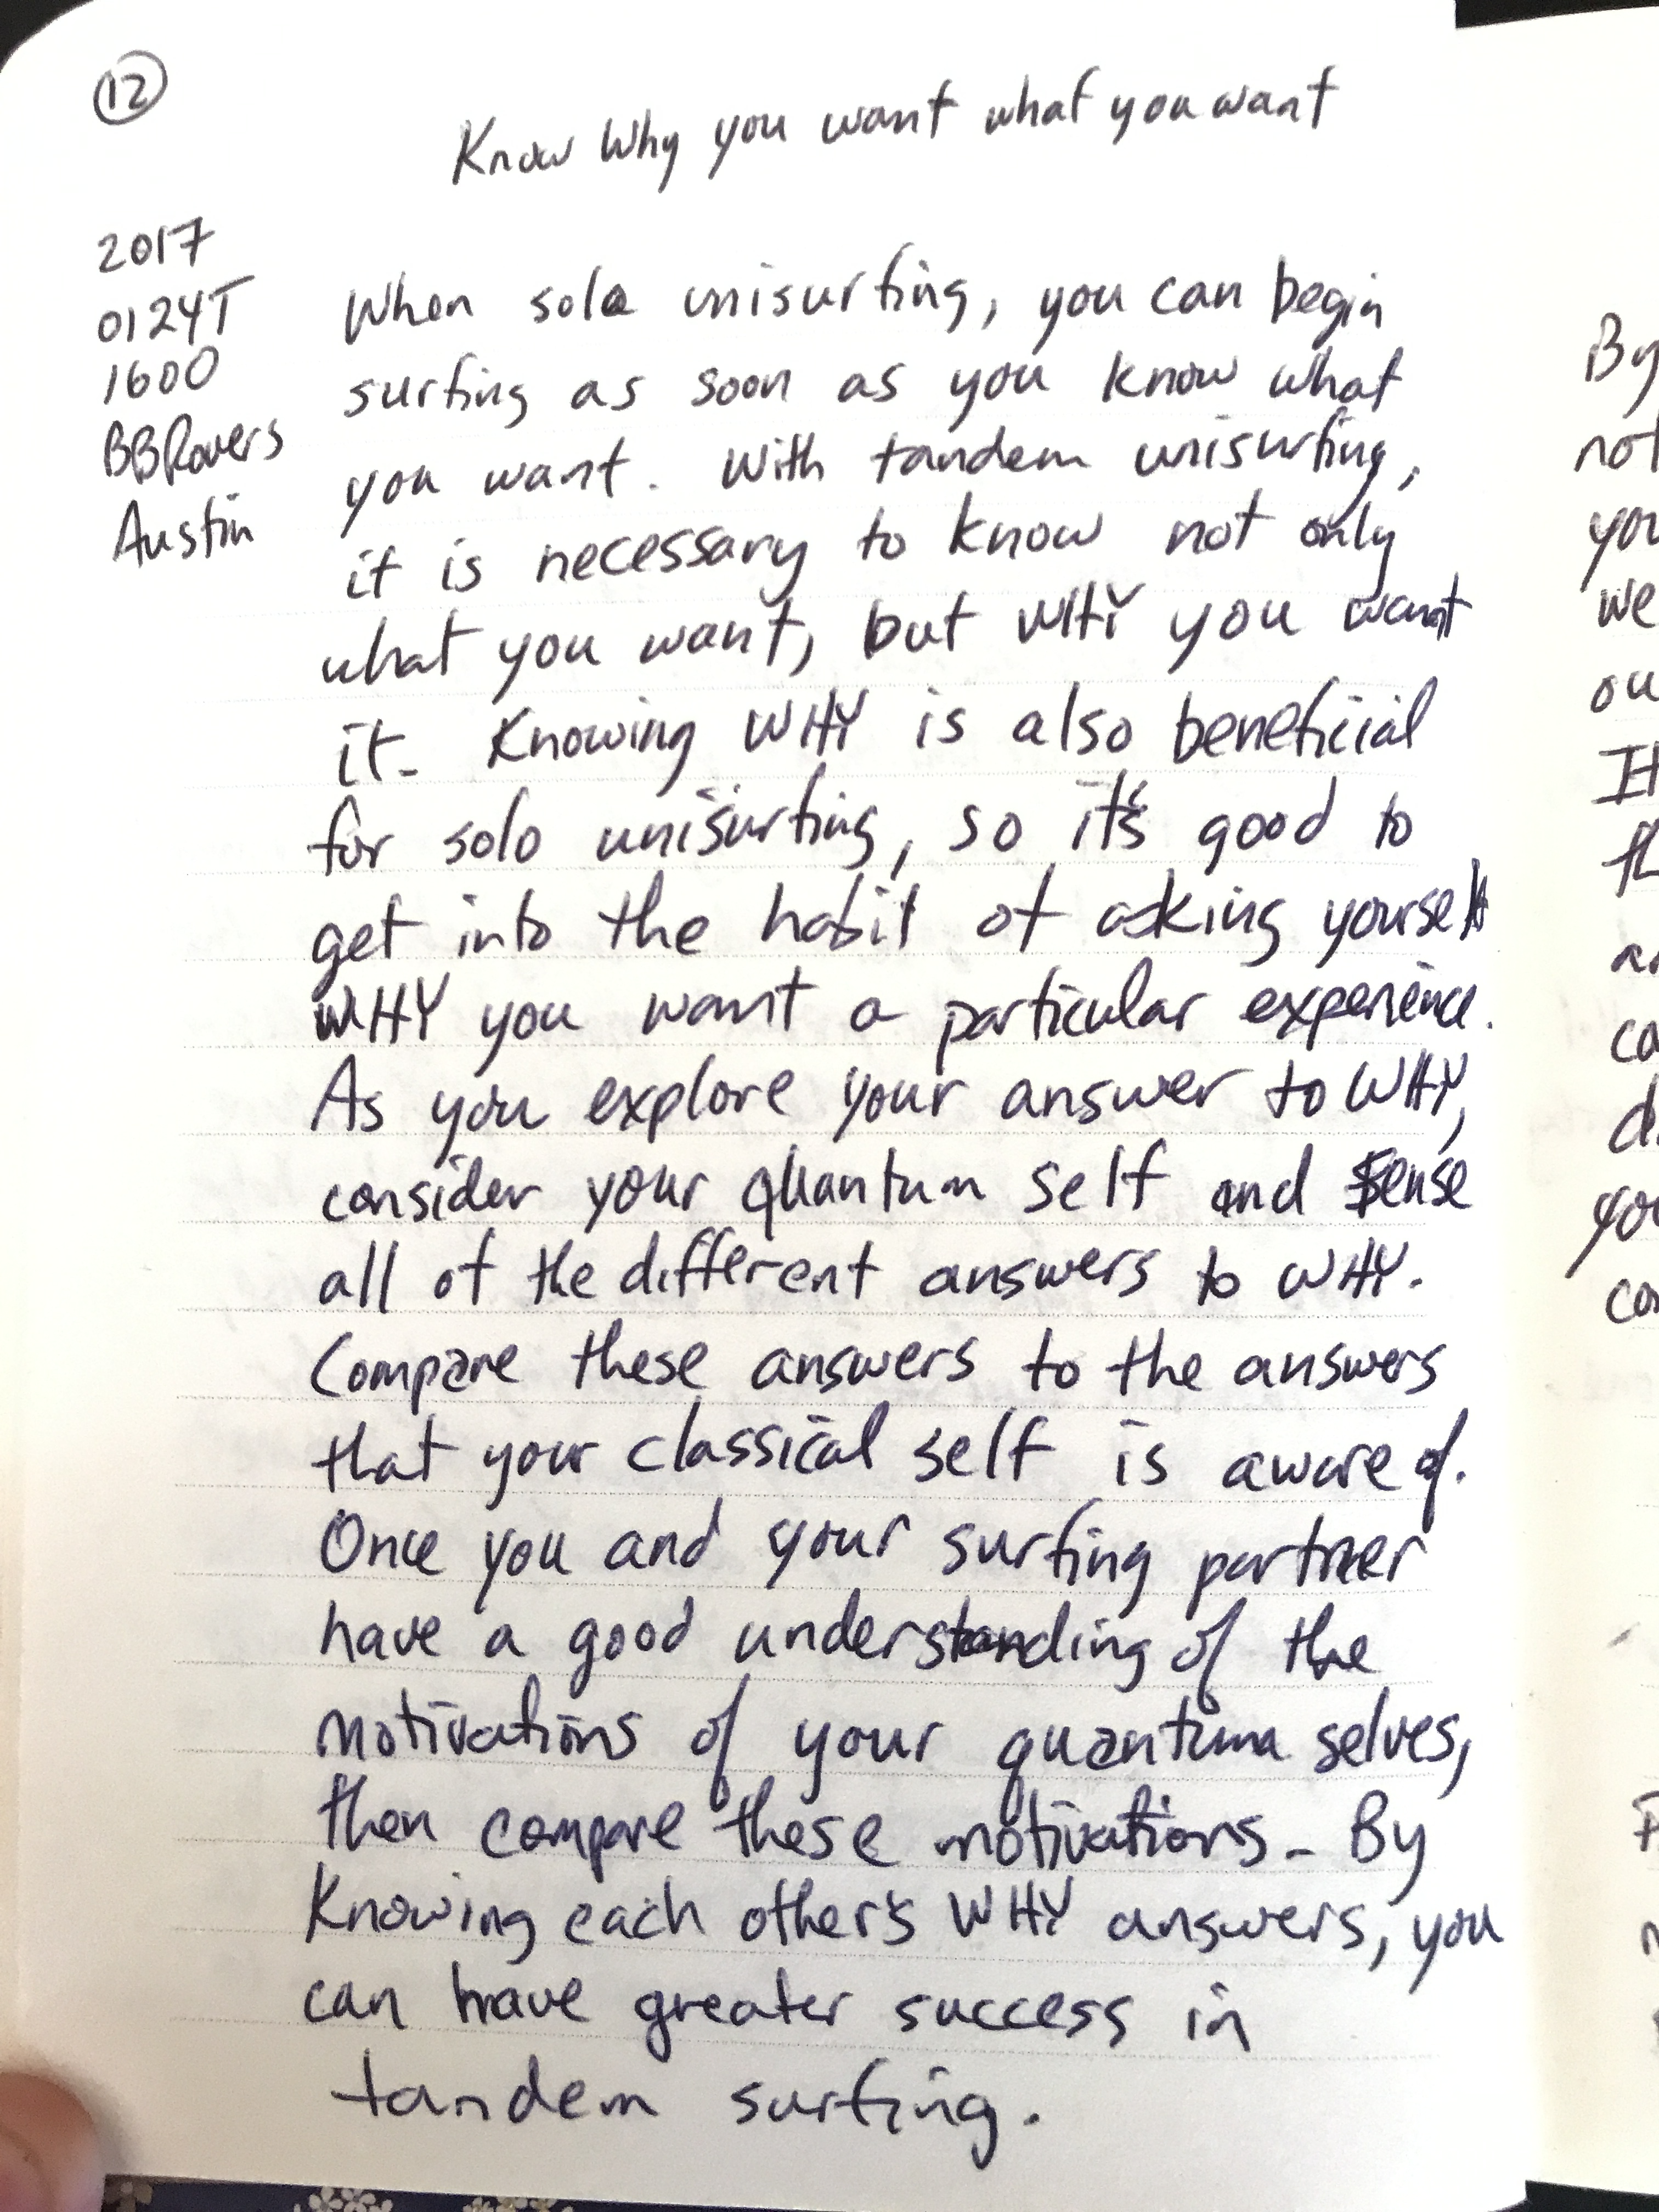 12
Know Why you want what you want
2017
0124T
1600
BBRovers
Austin
When solo unisurfing, you can begin
surfing as soon as you know what
you want. With tandem unisurfing,
it is necessary to know not only
what you want, but WHY you want
it. Knowing WHY is also beneficial
for solo unisurfing, so it's good to
get into the habit of asking yourself
WHY you want a particular experience.
As you explore your answer to WHY,
consider your quantum self and sense
all of the different answers to WHY.
Compare these answers to the answers
that your classical self is aware of.
Once you and your surfing partner
have a good understanding of the
motivations of your quantum selves,
then compare these motivations. By
Knowing each other's WHY answers, you
can have greater success in
tandem surfing.
By
not
you
we
ou
It
th
co
d
you
con